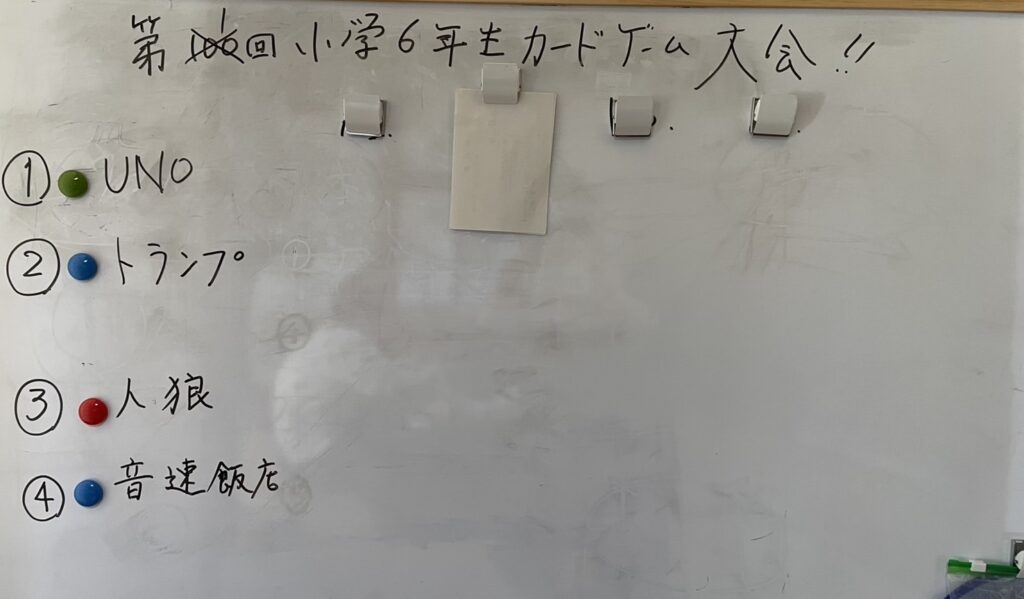 第1回小学6年生カードゲーム大会!!
① UNO
② トランプ
③ 人狼
④ 音速飯店